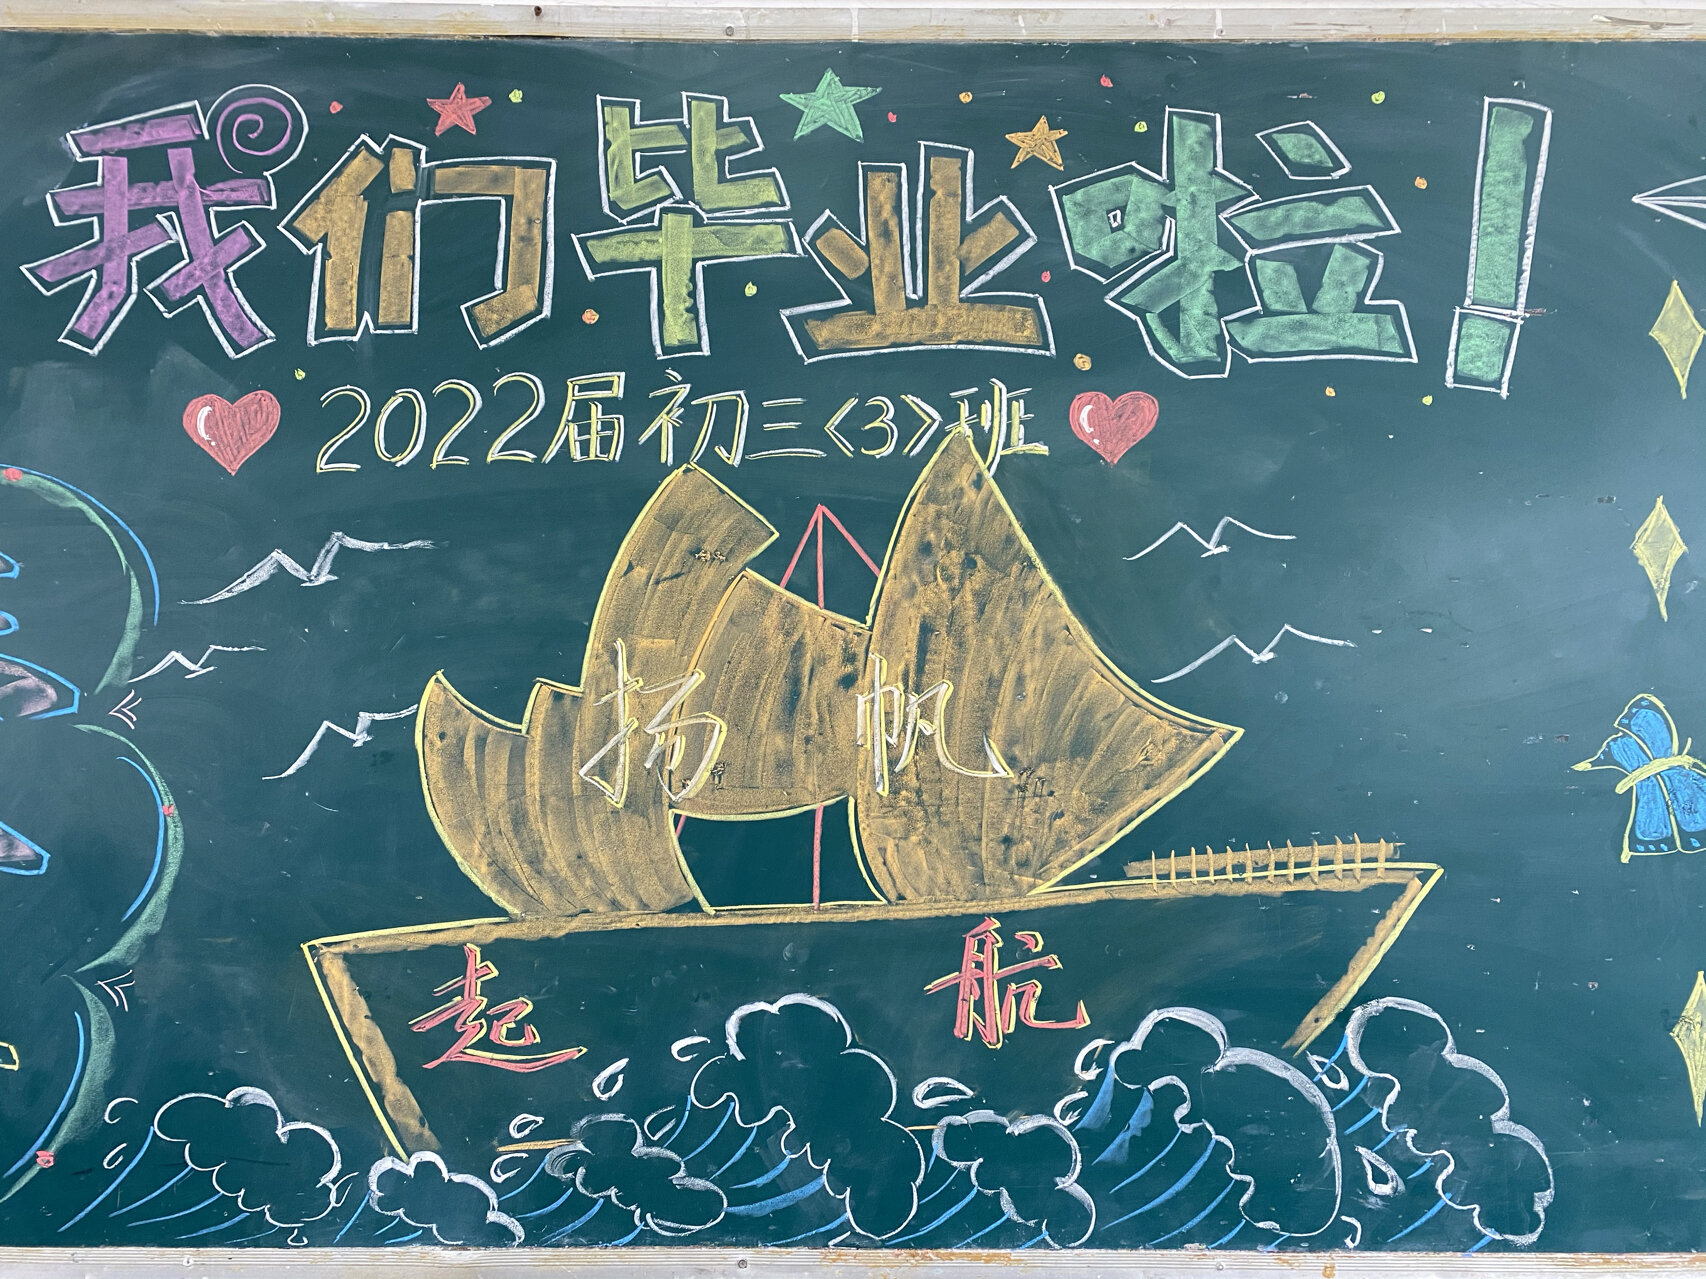 我们毕业啦!
2022届初三<3>班
扬帆
起航